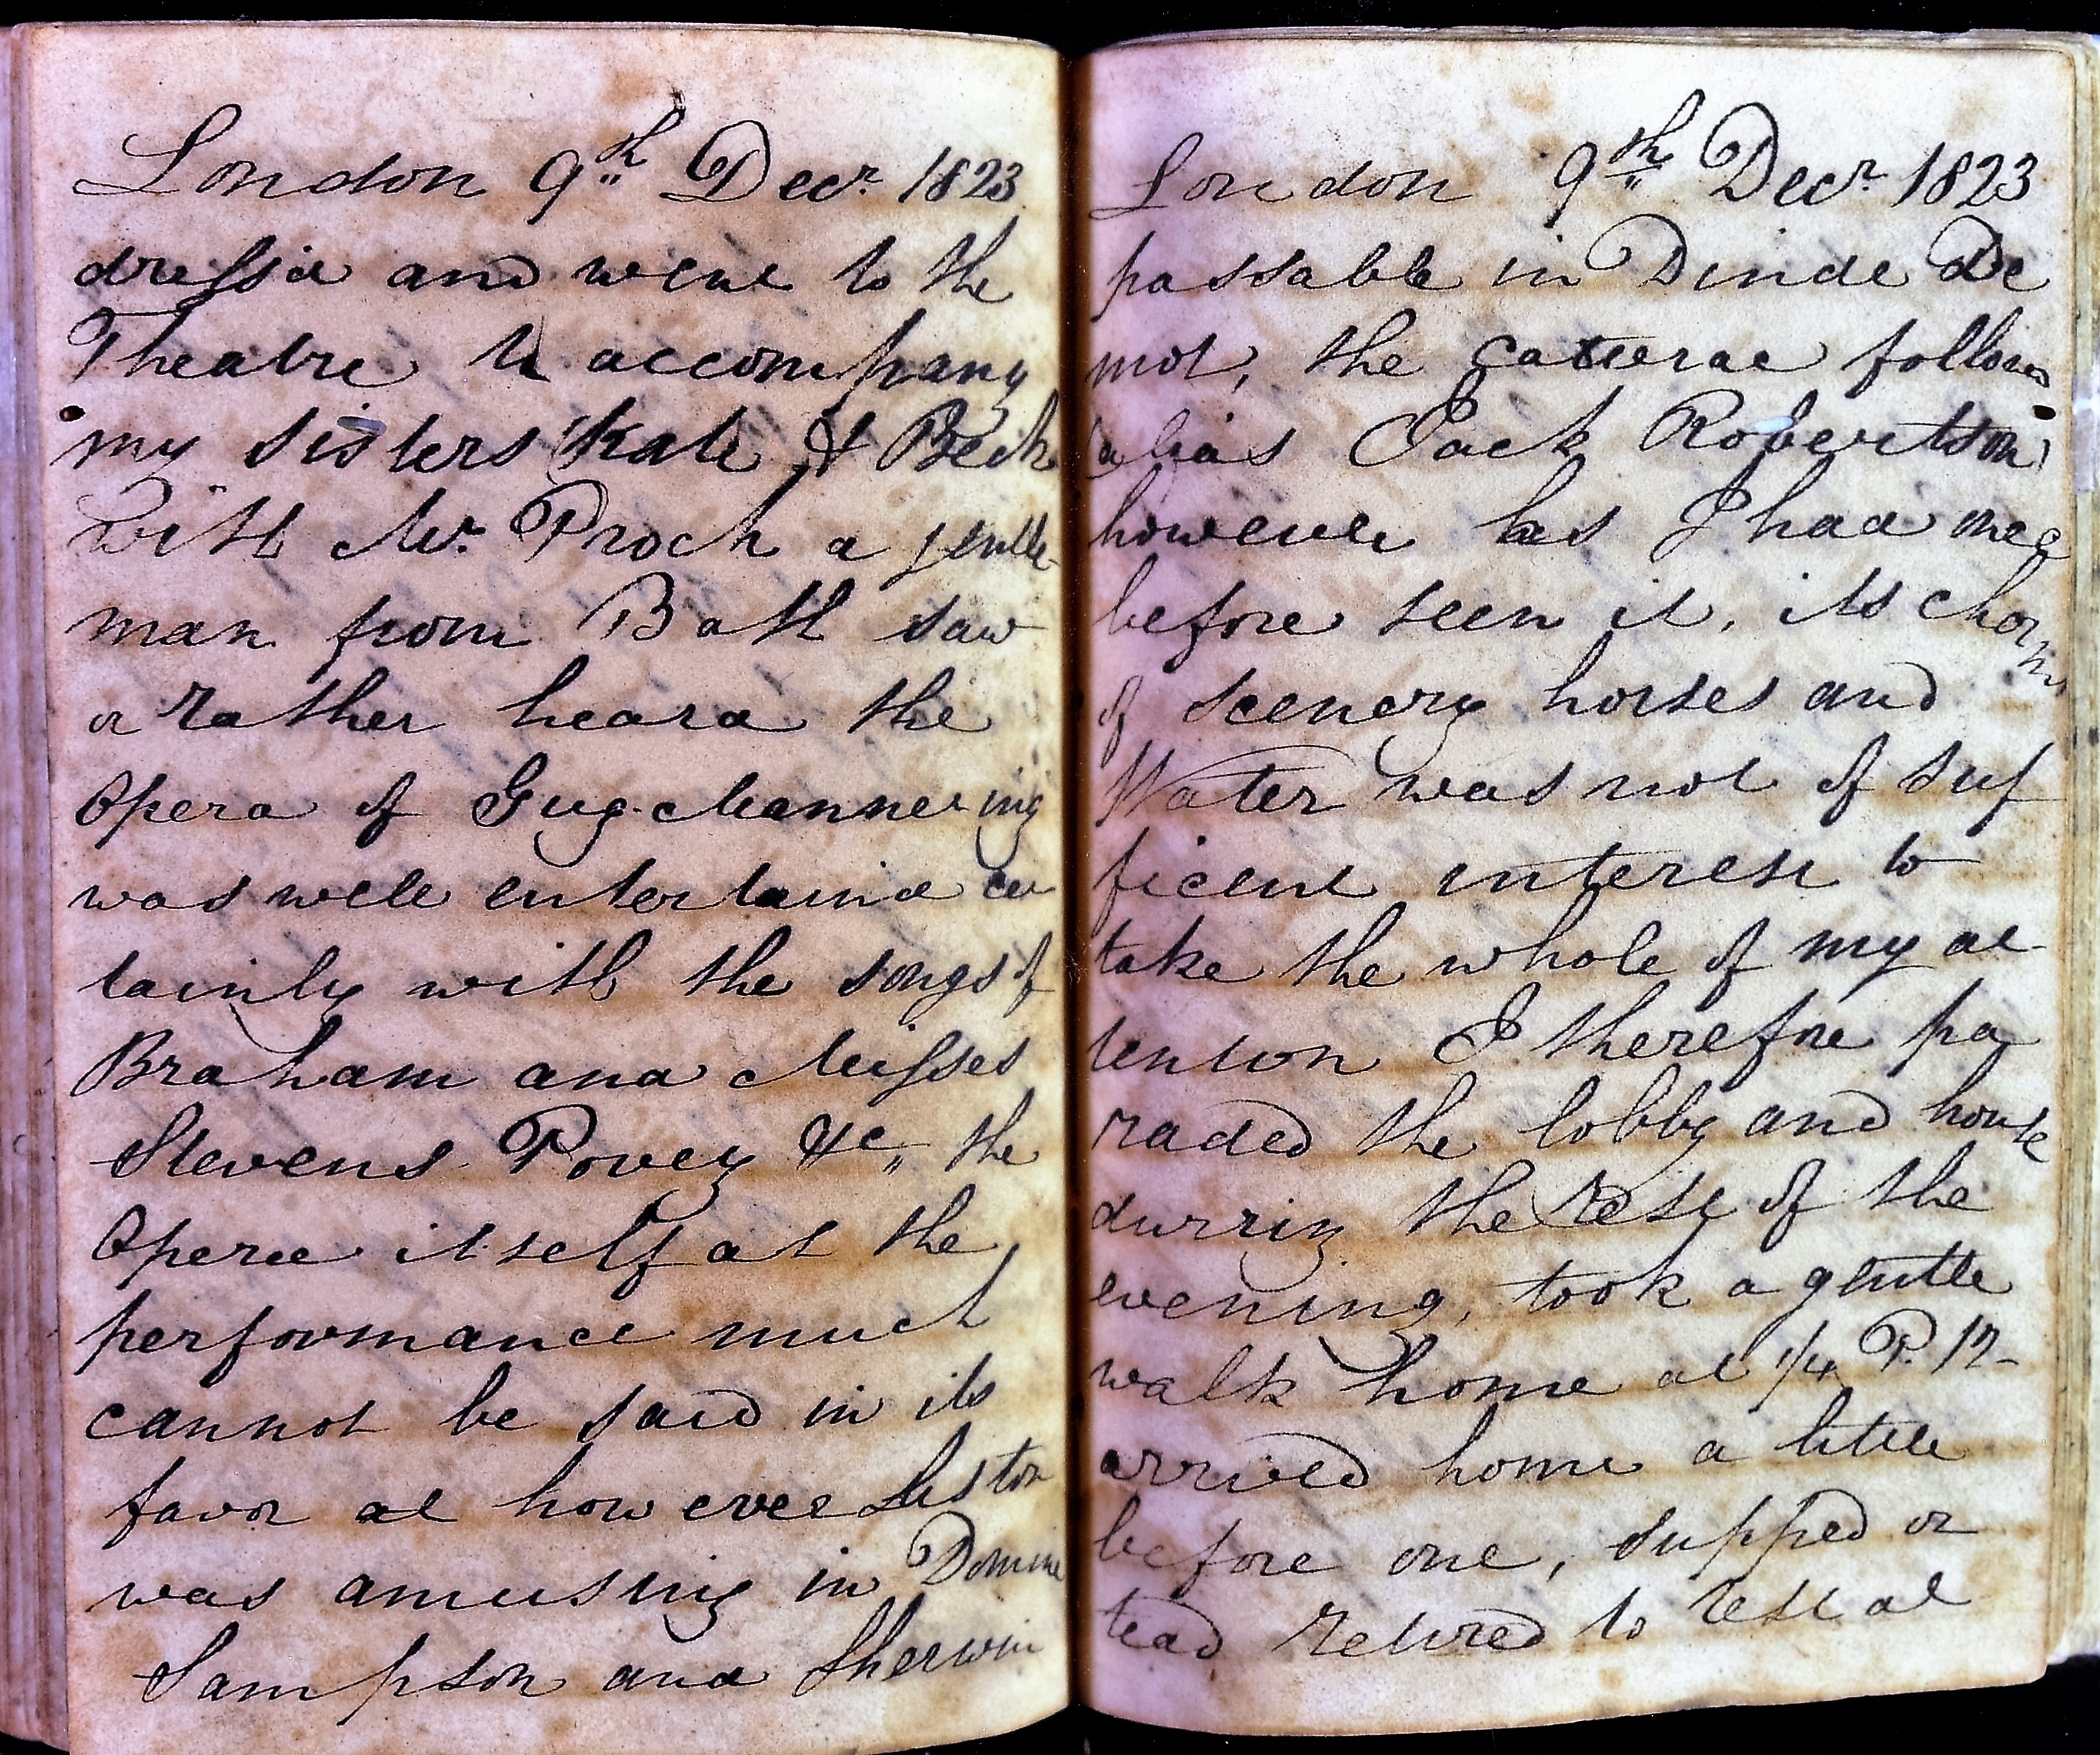 London 9th Decr. 1823
dressd and went to the
Theatre to accompany
my sisters Kate & Beck
with Mr. Proch a gentle-
man from Bath saw
or rather heard the
Opera of Guy Mannering
was well entertaind cer
tainly with the songs of
Braham and Misses
Stevens Povey &c,, the
Opera itself as the
performance much
cannot be said in its
favor at however Liston
was amusing in Domine
Sampson and Sherwin
London 9th Decr. 1823
passable in Dinde De
mot, the followd
(alias Jack Robertson)
however as I had once
before seen it, its charms
of scenery horses and
Water was not of suf
ficent interest to
take the whole of my at-
tention I therefore pa
raded the lobby and house
durring the rest of the
evening, took a gentle
walk home at 1/4 P. 12
arrived home a little
before one, supped or
tead retired to rest at